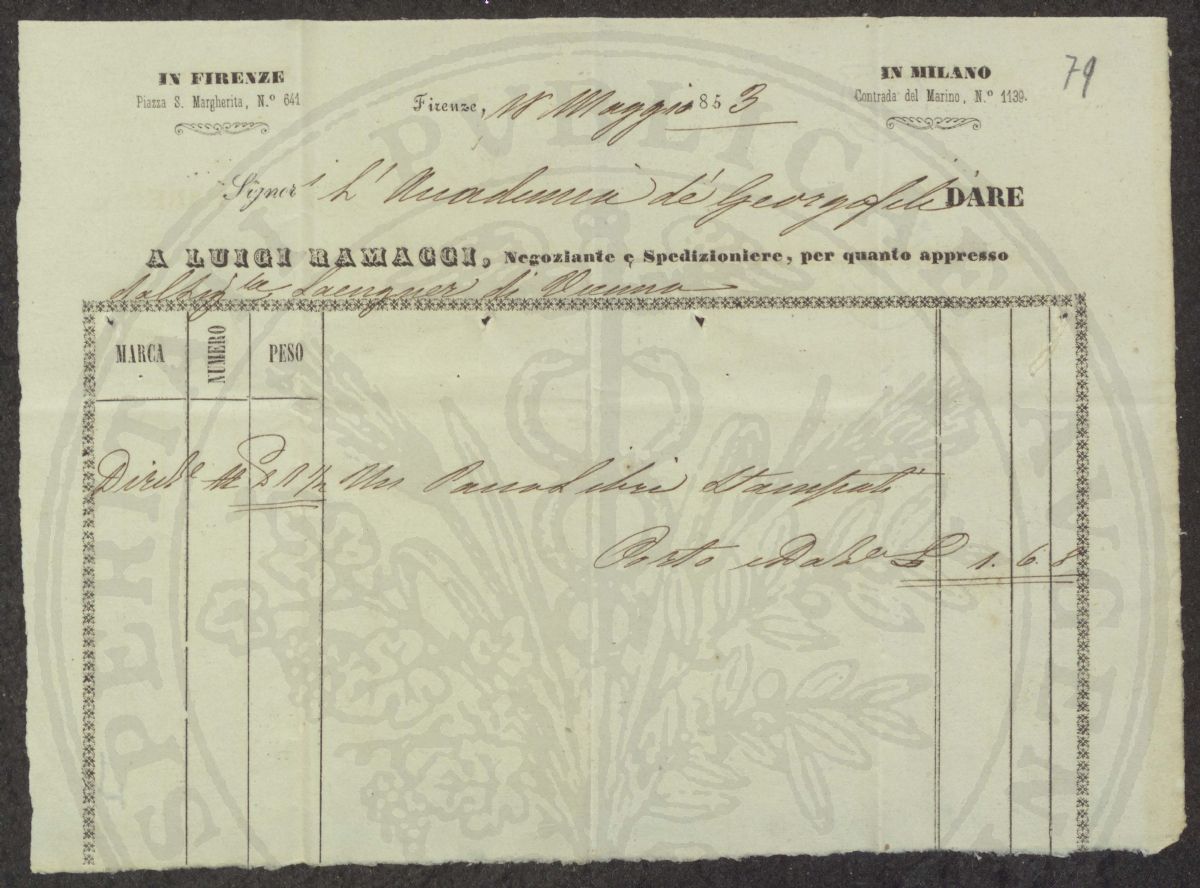 IN FIRENZE
Piazza S. Margherita, N.º 641
IN MILANO
Contrada del Marino, N.º 1139.
79
Firenze, 18 Maggio 853
Signor L' Accademia de' Georgofili DARE
A LUIGI RAMACCI, Negoziante e Spedizioniere, per quanto appresso
di Vienna
MARCA NUMERO PESO
1/2 Un Pacco Libri Stampati
Porto e £ 1. 6. 8
PVBLICAE
PROSPERITATI AVGENDAE